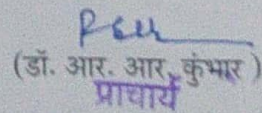 (डॉ. आर. आर. कुंभार)
प्राचार्य